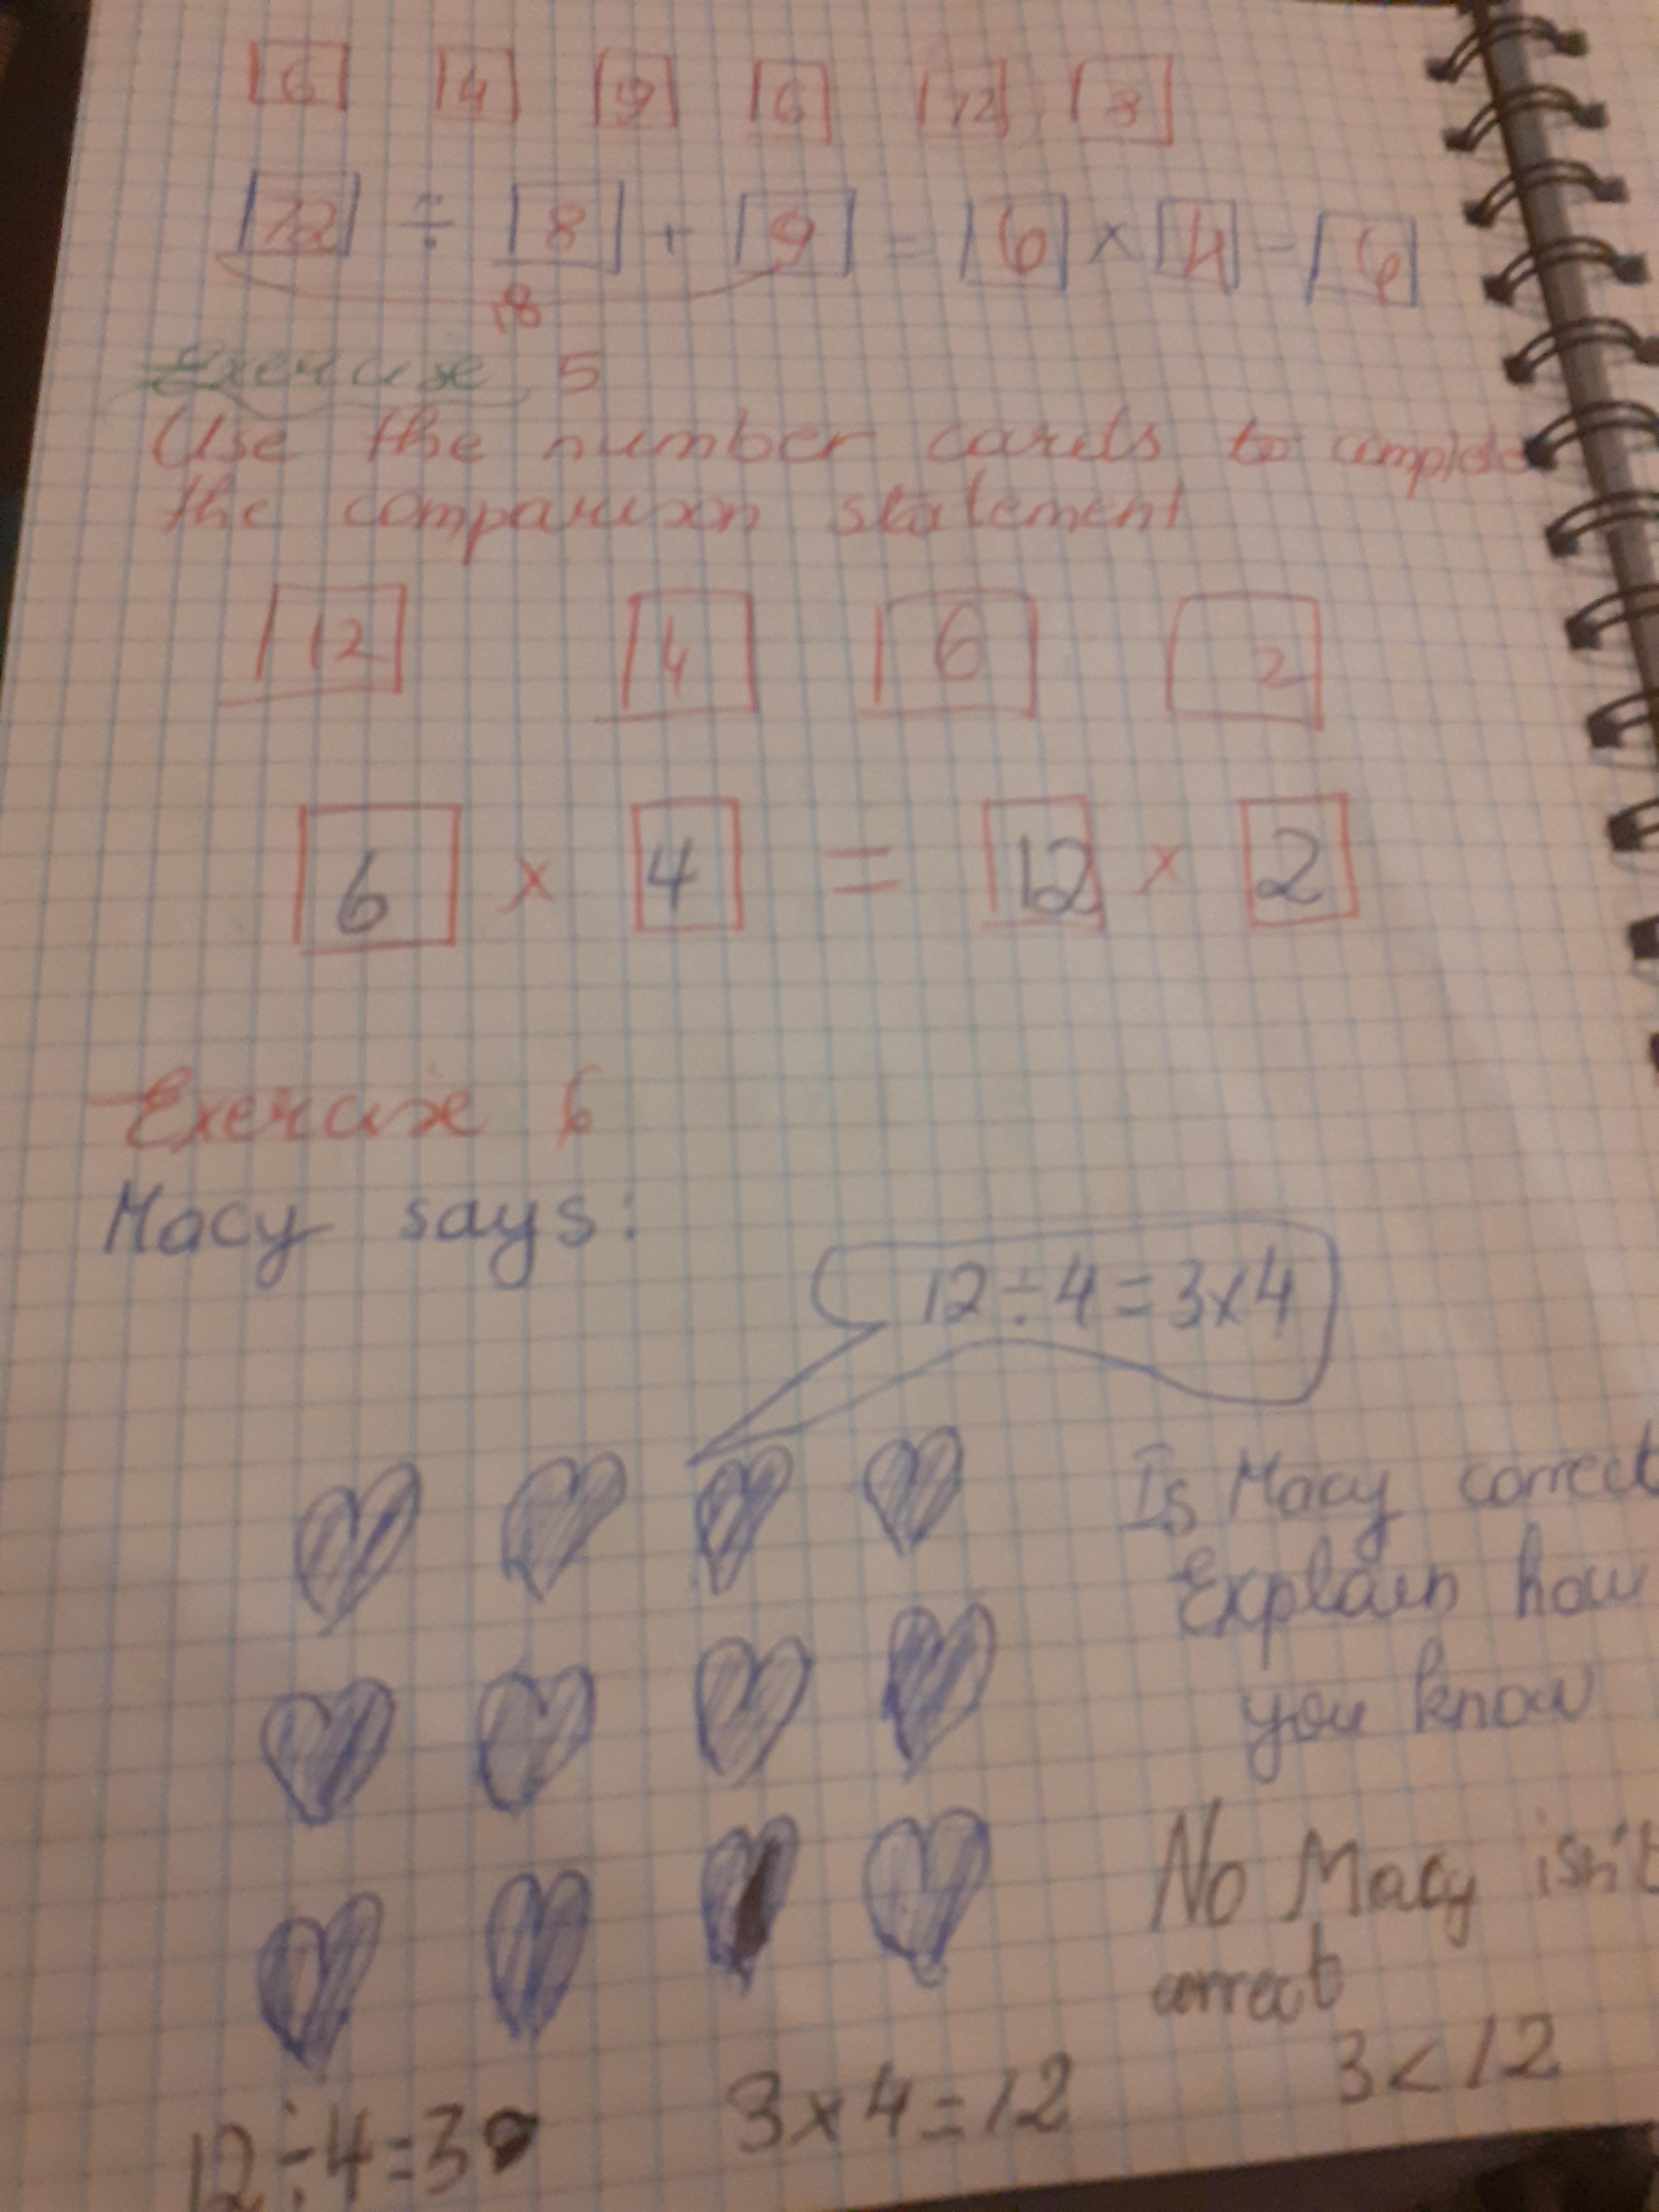 6 4 9 6 72 8
72 ÷ 8 + 9 = 6 × 4 - 6
18
Exercise 5
Use the number cards to complete
the comparison statement
12 4 6 2
6 × 4 = 12 × 2
Exercise 6
Macy says:
12 ÷ 4 = 3 × 4
Is Macy correct
Explain how
you know
No Macy isn't
correct
3 < 12
12 ÷ 4 = 3
3 × 4 = 12